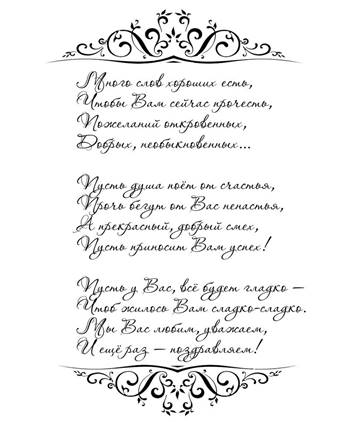 Много слов хороших есть,
Чтобы Вам сейчас прочесть,
Пожеланий откровенных,
Добрых, необыкновенных...
Пусть душа поёт от счастья,
Прочь бегут от Вас ненастья,
А прекрасный, добрый смех,
Пусть приносит Вам успех!
Пусть у Вас, всё будет гладко –
Чтоб жилось Вам сладко-сладко.
Мы Вас любим, уважаем,
И ещё раз – поздравляем!